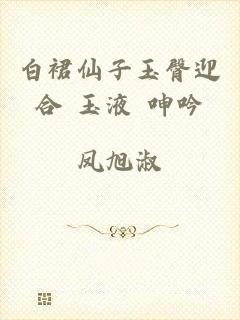 白裙仙子玉臀迎
合 玉液 呻吟
凤旭淑